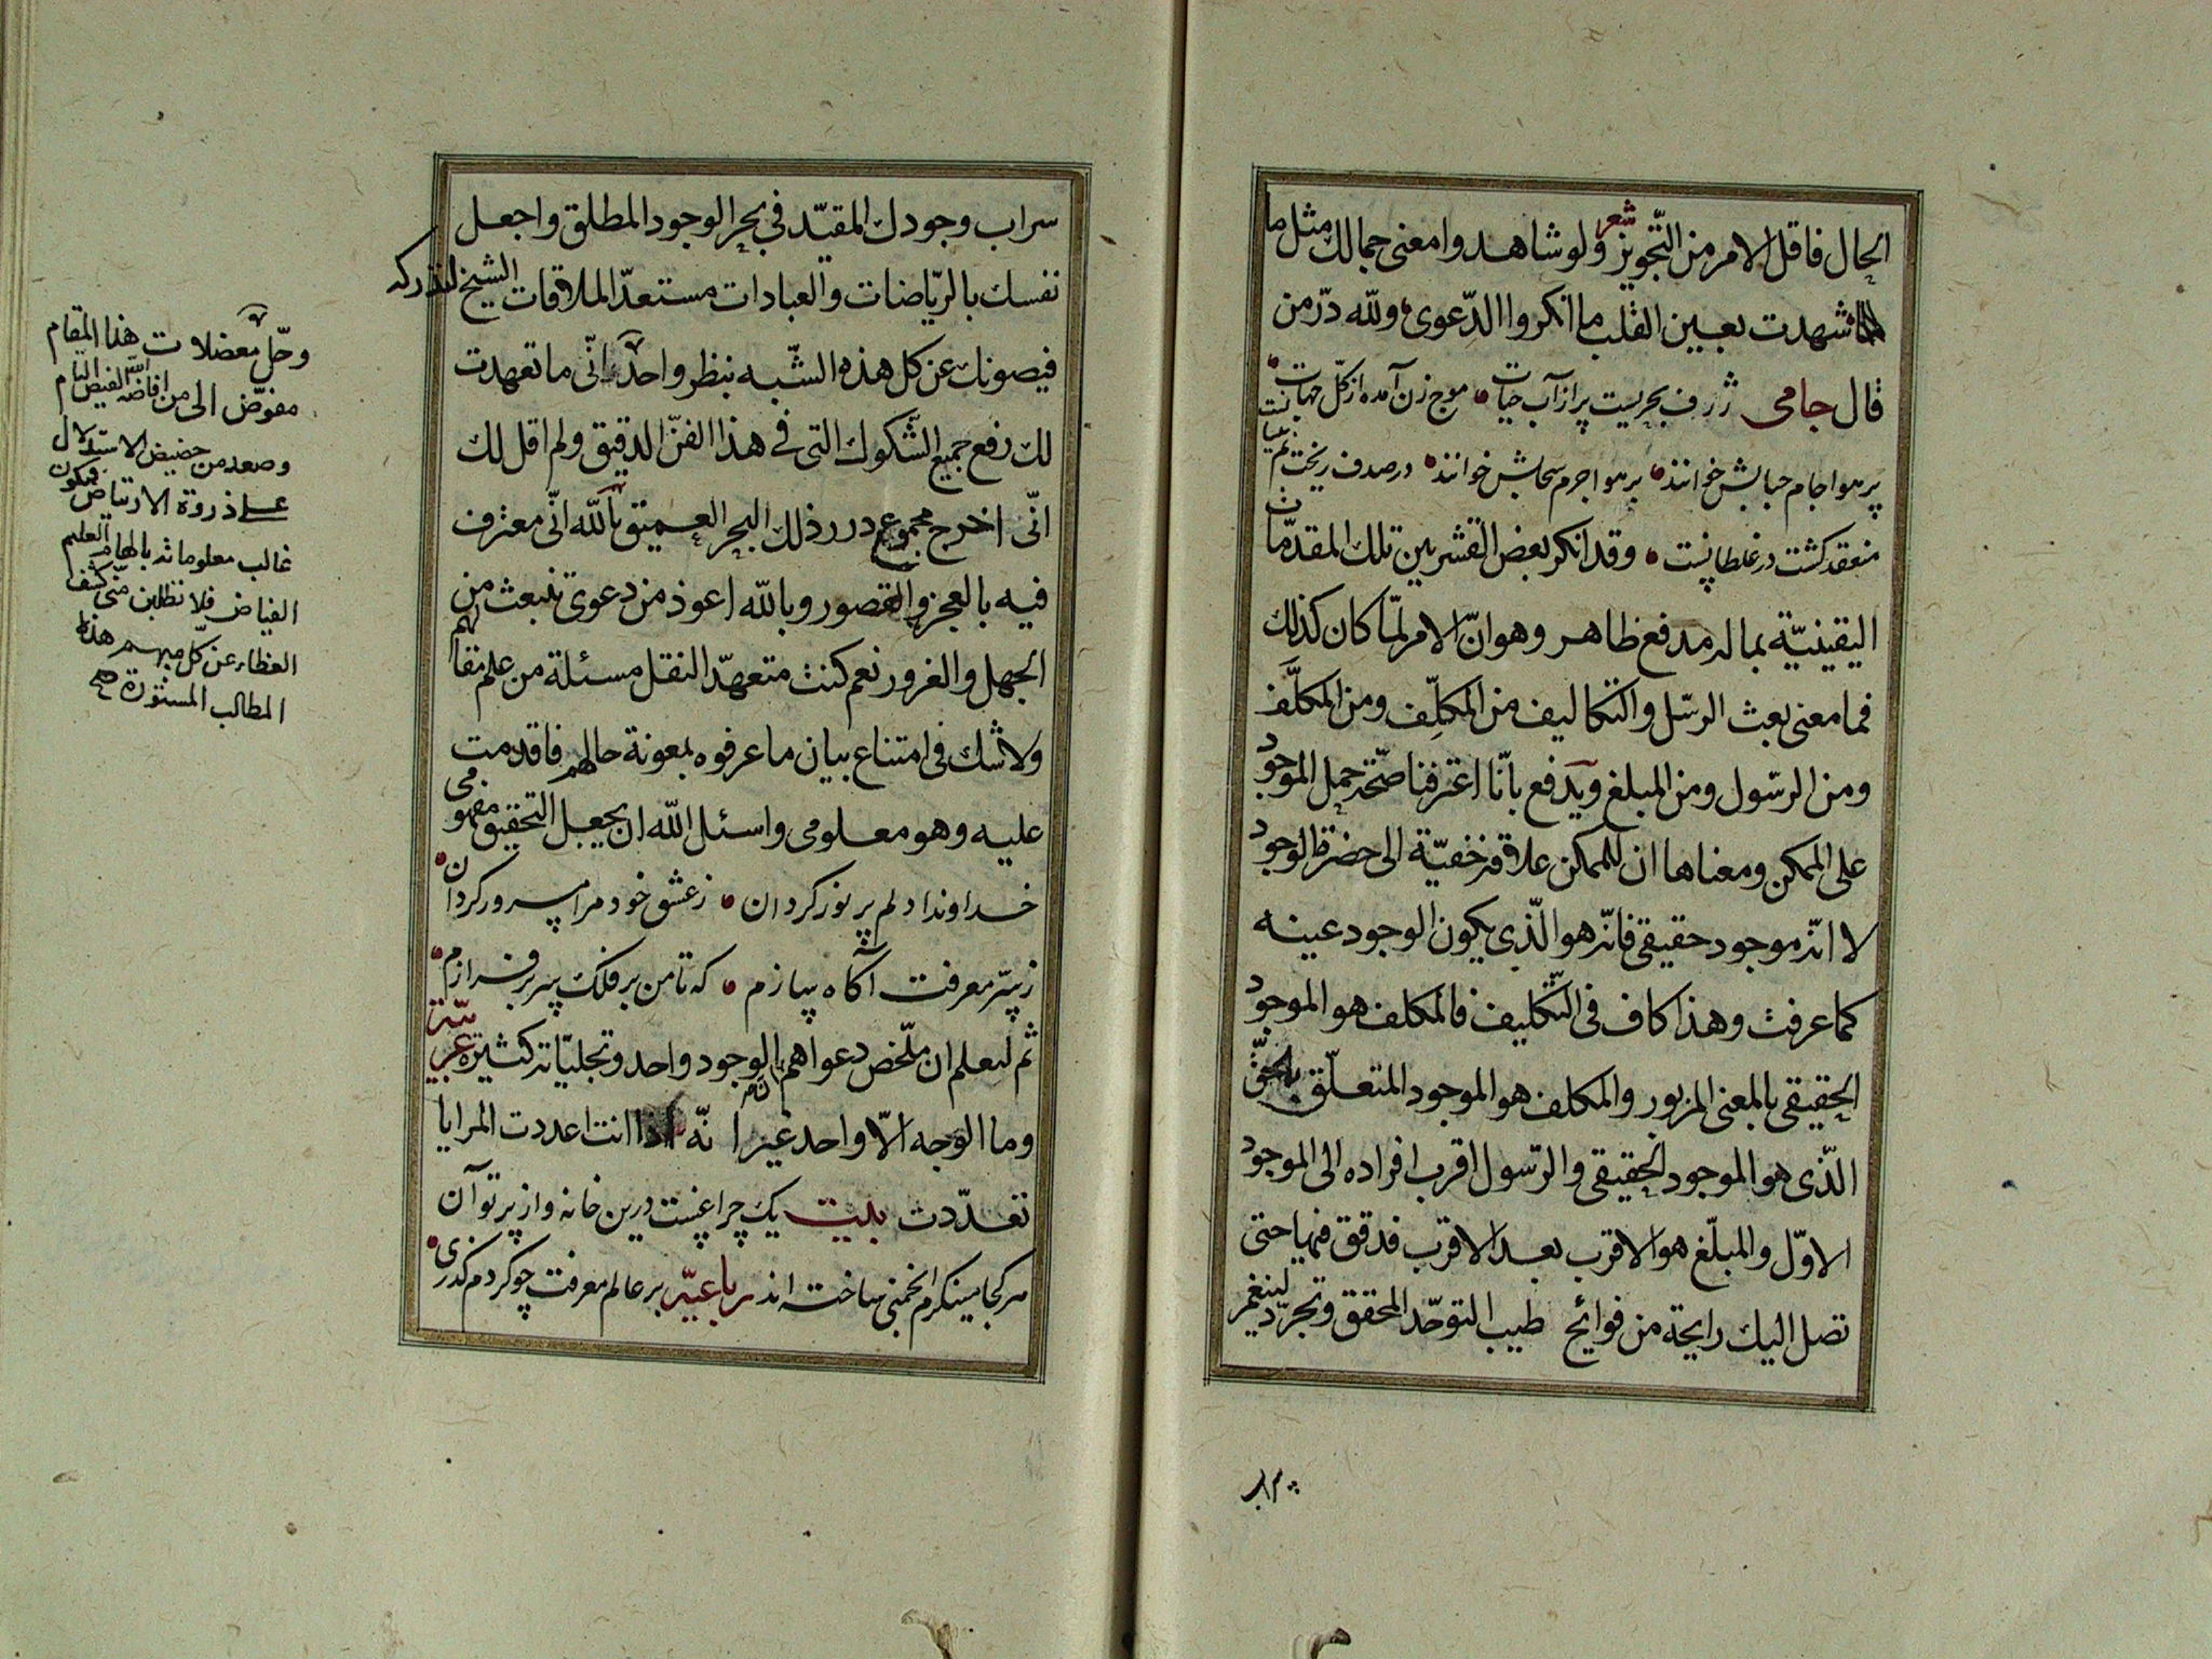 الحال فاقل الامر من التّجويز شعر ولو شاهدوا معنى جمالك مثل ما
شهدت بعين القلب ما انكروا الدّعوى ولله درّ من
قال جامى ژرف بحريست پر از آب حيات موج زن آمده از كلّ جهات
بر هوا جام حبابش خوانند بر هوا جرم سحابش خوانند در صدف ريخت
منعقد گشت در غلطانست وقد انكر بعض القشريين تلك المقدّمات
اليقينيّة بماله مدفع ظاهر وهو انّ الامر لمّا كان كذلك
فما معنى بعث الرسّل والتكاليف من المكلِّف ومن المكلَّف
ومن الرسّول ومن المبلغ ويدفع بانّا اعترفنا صحّة حمل الموجود
على الممكن ومعناها ان للممكن علاقة خفيّة الى حضرة الوجود
لا انّه موجود حقيقى فانّه هو الّذى يكون الوجود عينه
كما عرفت وهذا كاف فى التّكليف فالمكلف هو الموجود
الحقيقى بالمعنى المزبور والمكلف هو الموجود المتعلّق بالحقّ
الّذى هو الموجود الحقيقى والرّسول اقرب افراده الى الموجود
الاوّل والمبلّغ هو الاقرب بعد الاقرب فدقق فيها حتى
تصل اليك رايحة من فوائح طيب التوحّد المحقق وتجرّد لينغمر
سراب وجودك المقيّد فى بحر الوجود المطلق واجعل
نفسك بالرّياضات والعبادات مستعدّا لملاقات الشيخ لتدركه
فيصونك عن كل هذه الشّبه بنظر واحد انّى ما تعهدت
لك رفع جميع الشّكوك التى فى هذا الفنّ الدقيق ولم اقل لك
انّى اخرج مجموع درر ذلك البحر العميق تاللّه انّى معترف
فيه بالعجز والقصور وباللّه اعوذ من دعوى تنبعث من
الجهل والغرور نعم كنت متعهدّا لنقل مسئلة من علم مقالهم
ولا شك فى امتناع بيان ما عرفوه بمعونة حالهم فاقدمت
عليه وهو معلومى واسئل اللّه ان يجعل التحقيق مفهومى
خداوندا دلم پر نور گردان ز عشق خود مرا مسرور گردان
ز سرّ معرفت آگاه سازم كه تا من بر فلك سر بر فرازم
ثم لتعلم ان ملخّص دعواهم الوجود واحد وتجليّاته كثيرة عربيّة
وما الوجه الّا واحد غير انّه اذا انت اعددت المرايا
تعدّدت بيت يك چراغيست درين خانه و از پرتو آن
هر كجا مينگرم انجمنى ساخته اند رباعيّه بر عالم معرفت چو كردم گذرى
وحلّ معضلات هذا المقام
مفوّض الى من افاضه اللّه الفيض التام
وصعد من حضيض الاستدلال
على ذروة الارتياض فيكون
غالب معلوماته بالهام العليم
الفياض فلا تطلبن منّى كشف
الغطاء عن كلّ مبهم هذه
المطالب المستورة صح